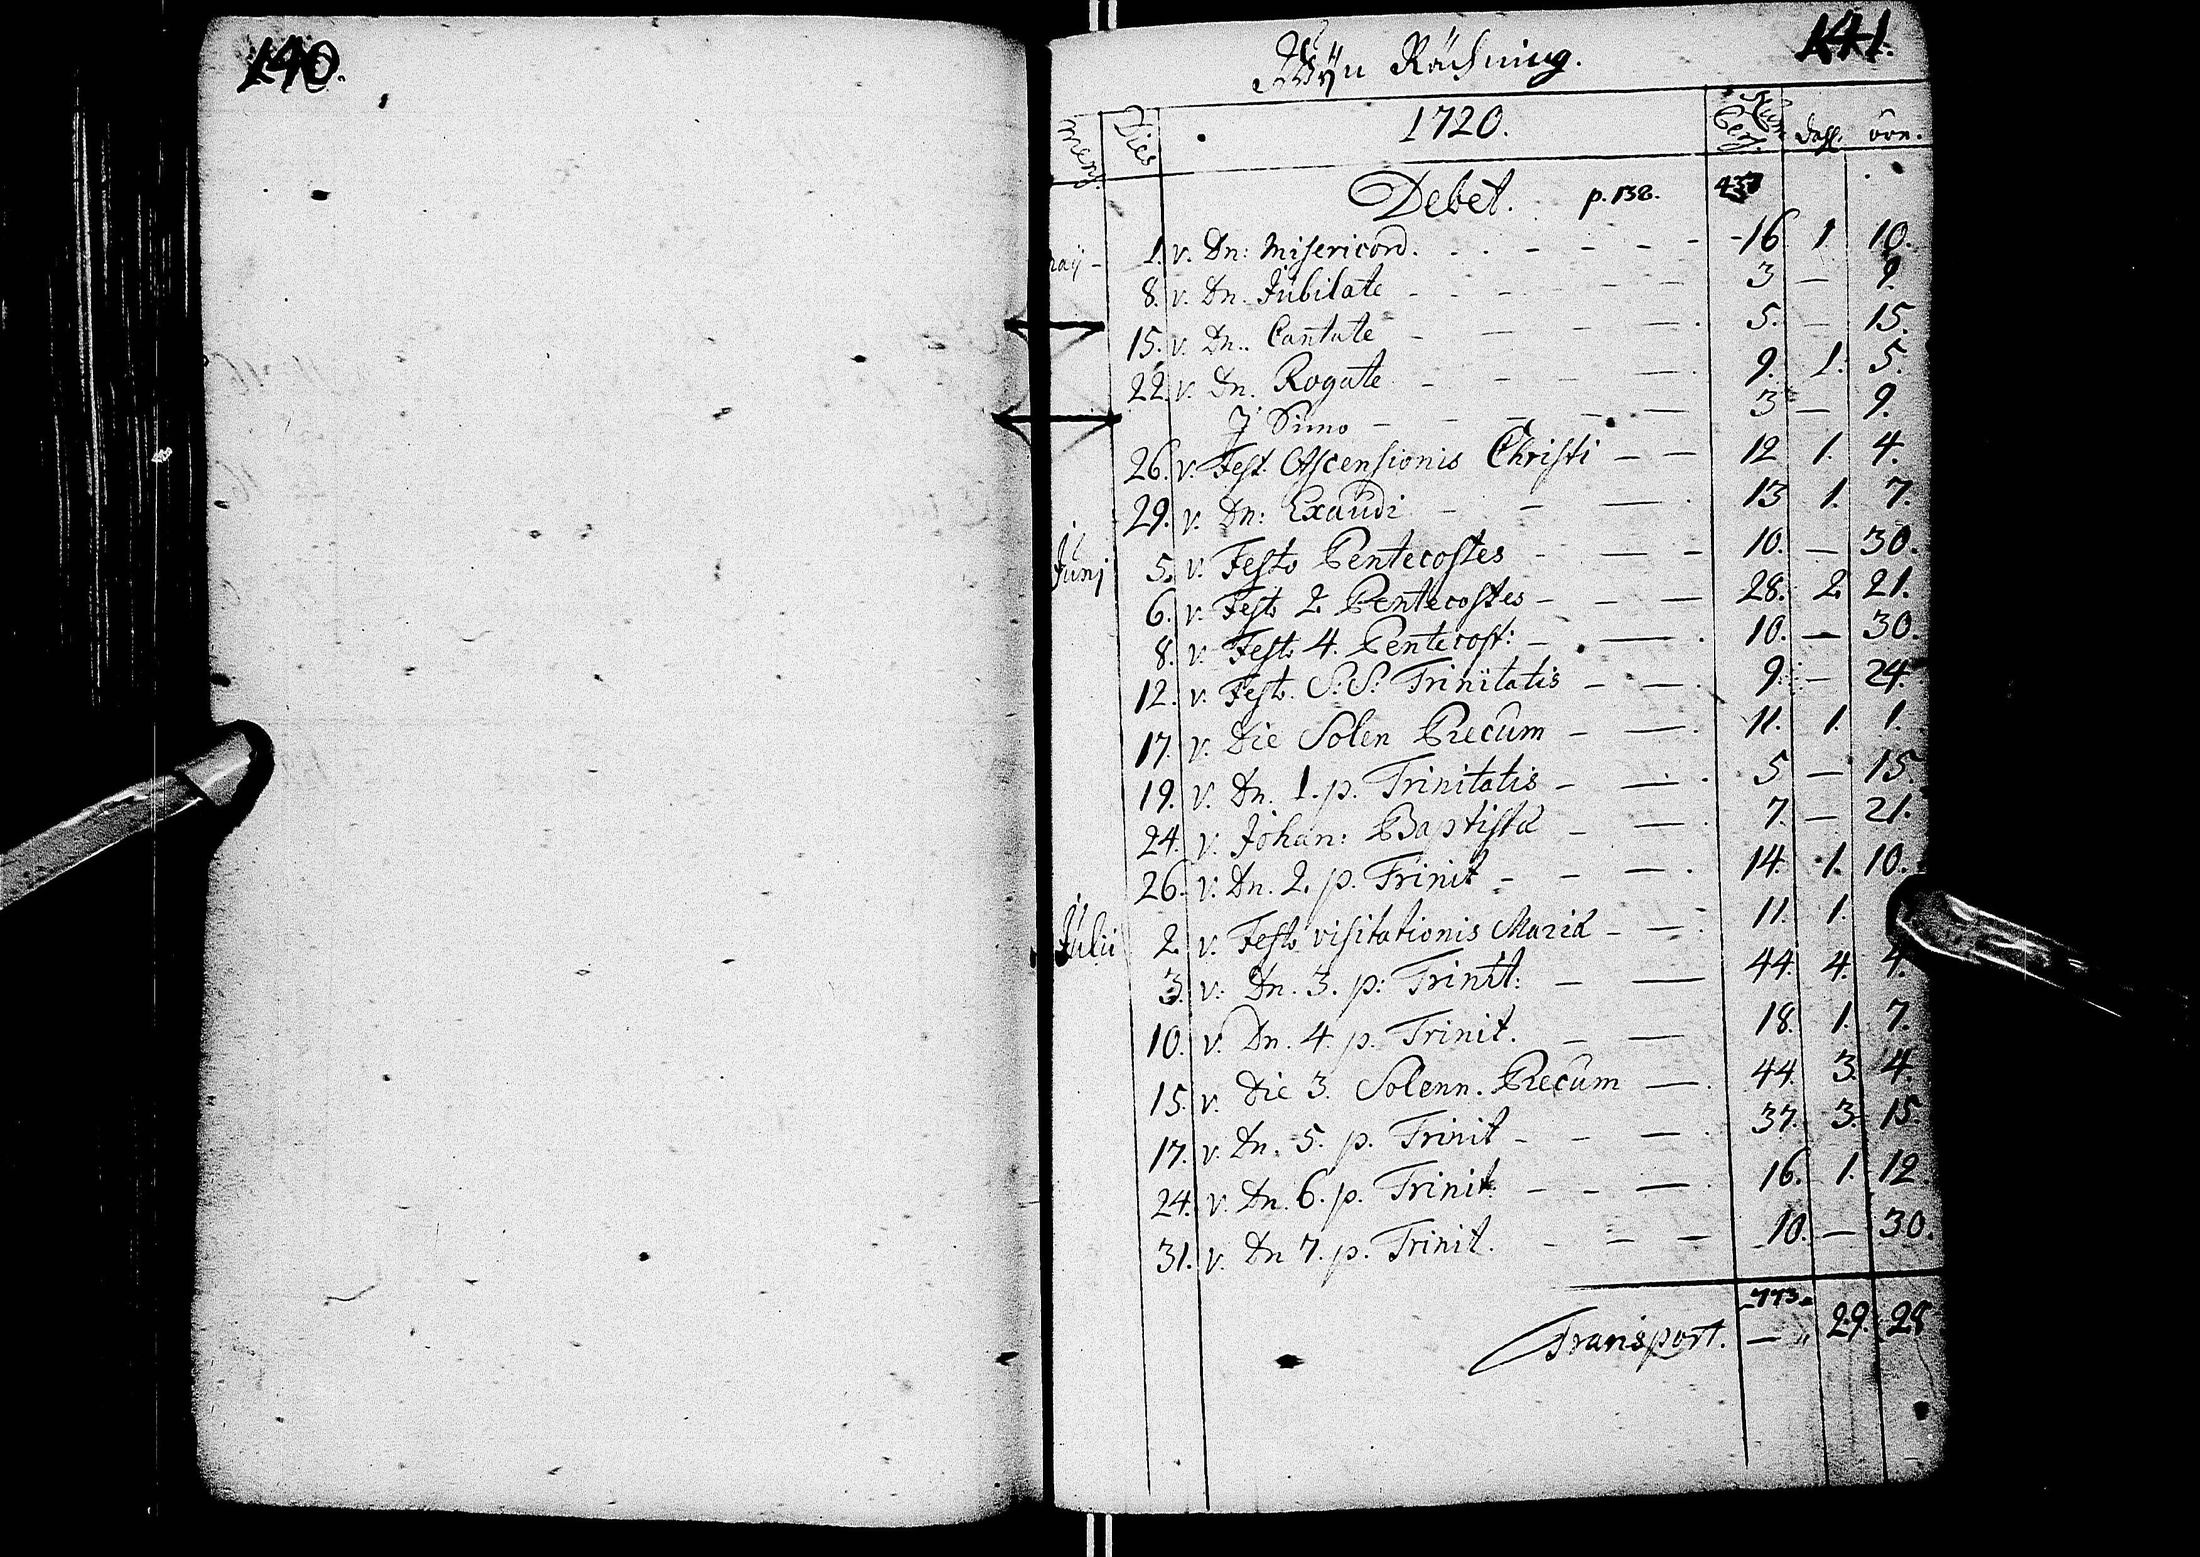 140.
141.
Wÿn Rächning.
Mens. Dies 1720. Num Pers. dahl. öre.
Debet. p. 138. 437
Maij - 1. v. Dn: Misericord. - - - 16 1 10.
8. v. Dn. Jubilate - - - 3 — 9.
15. v. Dn. Cantate - - - 5. — 15.
22. v. Dn. Rogate - - - 9. 1. 5.
J Simo - - - 3 — 9.
26. v. Fest. Ascensionis Christi - - 12 1. 4.
29. v. Dn: Exaudi - - - 13 1. 7.
Junj 5. v. Festo Pentecostes - - - 10. — 30.
6. v. Festo 2. Pentecostes - - - 28. 2. 21.
8. v. Festo 4. Pentecost: - - 10. — 30.
12. v. Festo. S.S. Trinitatis - - 9. — 24.
17. v. Die Solen Precum - - 11. 1. 1.
19. v. Dn. 1. p. Trinitatis - - 5 — 15.
24. v. Johan: Baptistæ - - 7. — 21.
26. v. Dn. 2. p. Trinit - - - 14. 1. 10.
Julii 2. v. Festo visitationis Mariæ - - 11. 1.
3. v. Dn. 3. p: Trinit: - - 44. 4. 4.
10. v. Dn. 4. p. Trinit. - - 18. 1. 7.
15. v. Die 3. Solenn. Precum - 44. 3. 4.
17. v. Dn. 5. p. Trinit - - - 37. 3. 15.
24. v. Dn. 6. p. Trinit. - - - 16. 1. 12.
31. v. Dn 7. p. Trinit. - - - 10. — 30.
773.
Transport. — 29. 28